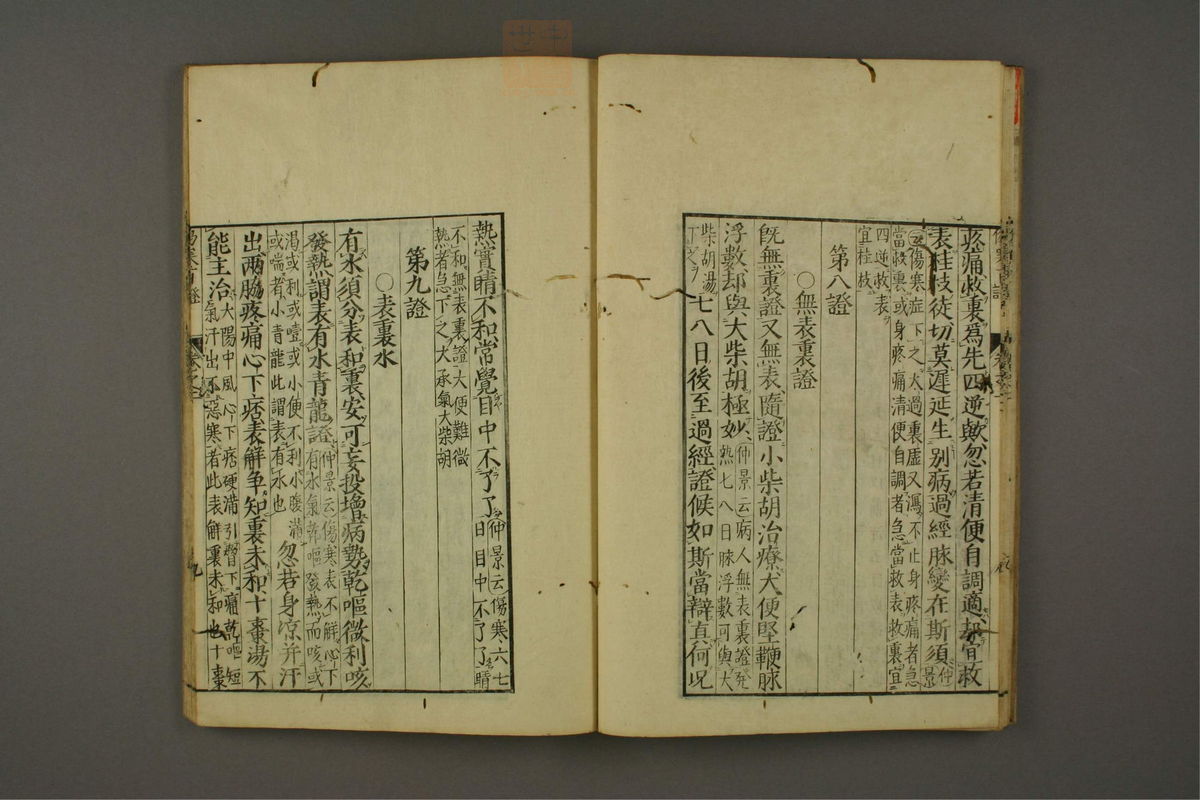 疼痛救裏爲先四逆歟忽若清便自調適却宜救
表桂枝徒切莫遲延生別病過經脉變在斯須仲景
云傷寒症下之大過裏虚又瀉不止身疼痛者急
當救裏或身疼痛清便自調者急當救表救裏宜
四逆救表
宜桂枝
第八證
〇無表裏證
旣無裏證又無表隨證小柴胡治療大便堅鞕脉
浮數却與大柴胡極妙仲景云病人無表裏證發
熱七八日脉浮數可與大
柴胡湯
下之
七八日後至過經證候如斯當辯眞何况
熱實睛不和常覺目中不了了仲景云傷寒六七
日目中不了了睛
不和無表裏證大便難微
熱者急下之大承氣大柴胡
第九證
〇表裏水
有水須分表和裏安可妄投增病勢乾嘔微利咳
發熱謂表有水青龍證仲景云傷寒表不解心下
有水氣乾嘔發熱而咳或
渴或利或噎或小便不利小腹滿
或喘者小青龍此謂表有水也
忽若身凉并汗
出兩脇疼痛心下痞表解爭知裏未和十棗湯不
能主治大陽中風心下痞硬滿引脇下痛乾嘔短
氣汗出不惡寒者此表解裏未和也十棗